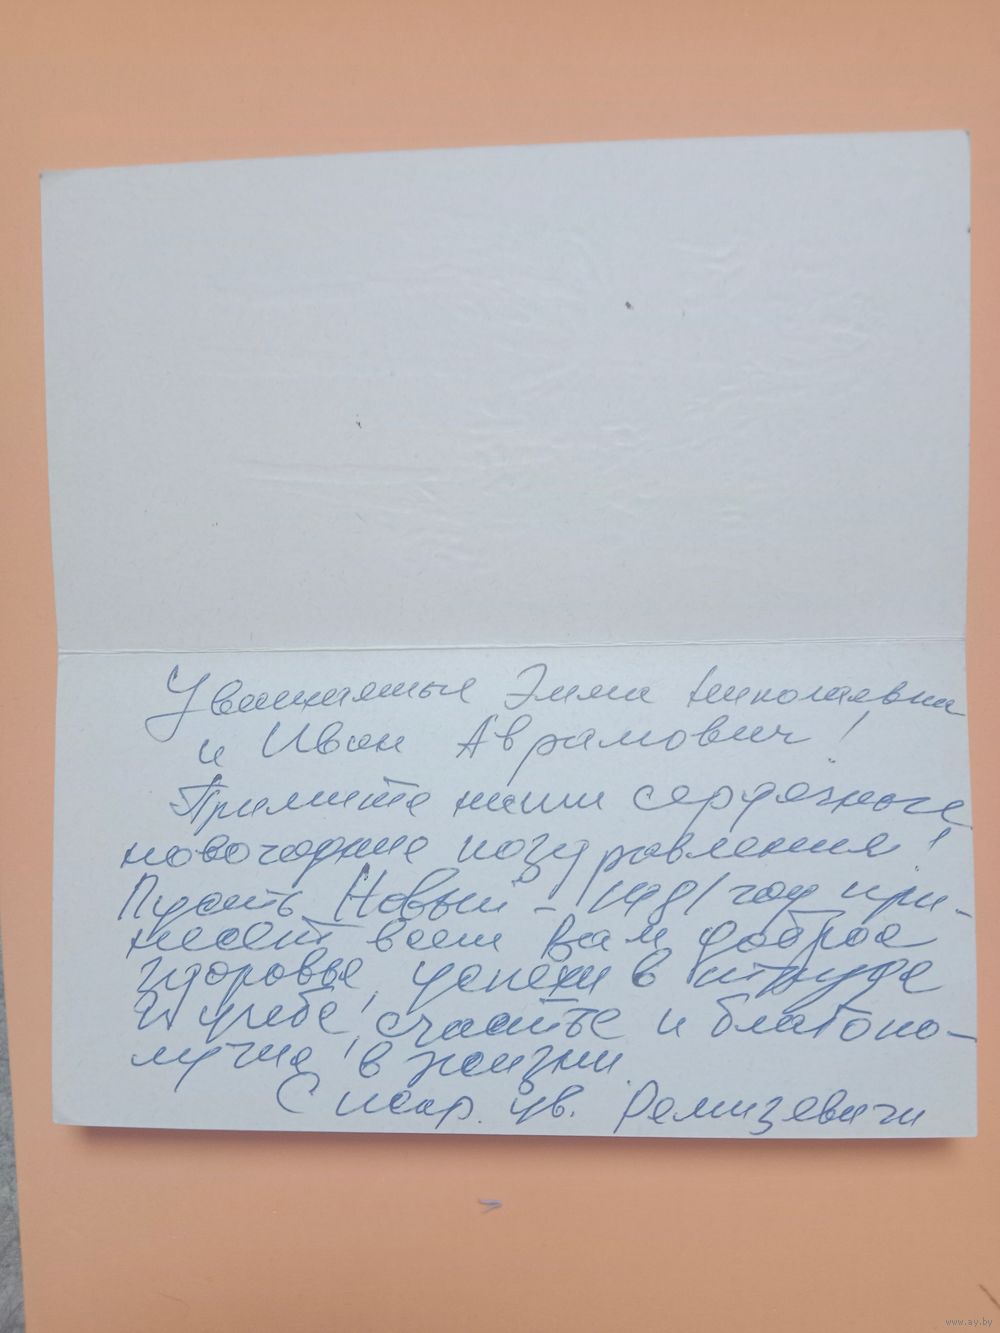 Уважаемые Эмма Николаевна
и Иван Аврамович!
Примите наши сердечные
новогодние поздравления!
Пусть Новый - 1981 год при-
несет всем вам доброе
здоровье, успехи в труде
и учебе, счастье и благопо-
лучия в жизни
С искр. ув. Ремизевичи
www.ay.by